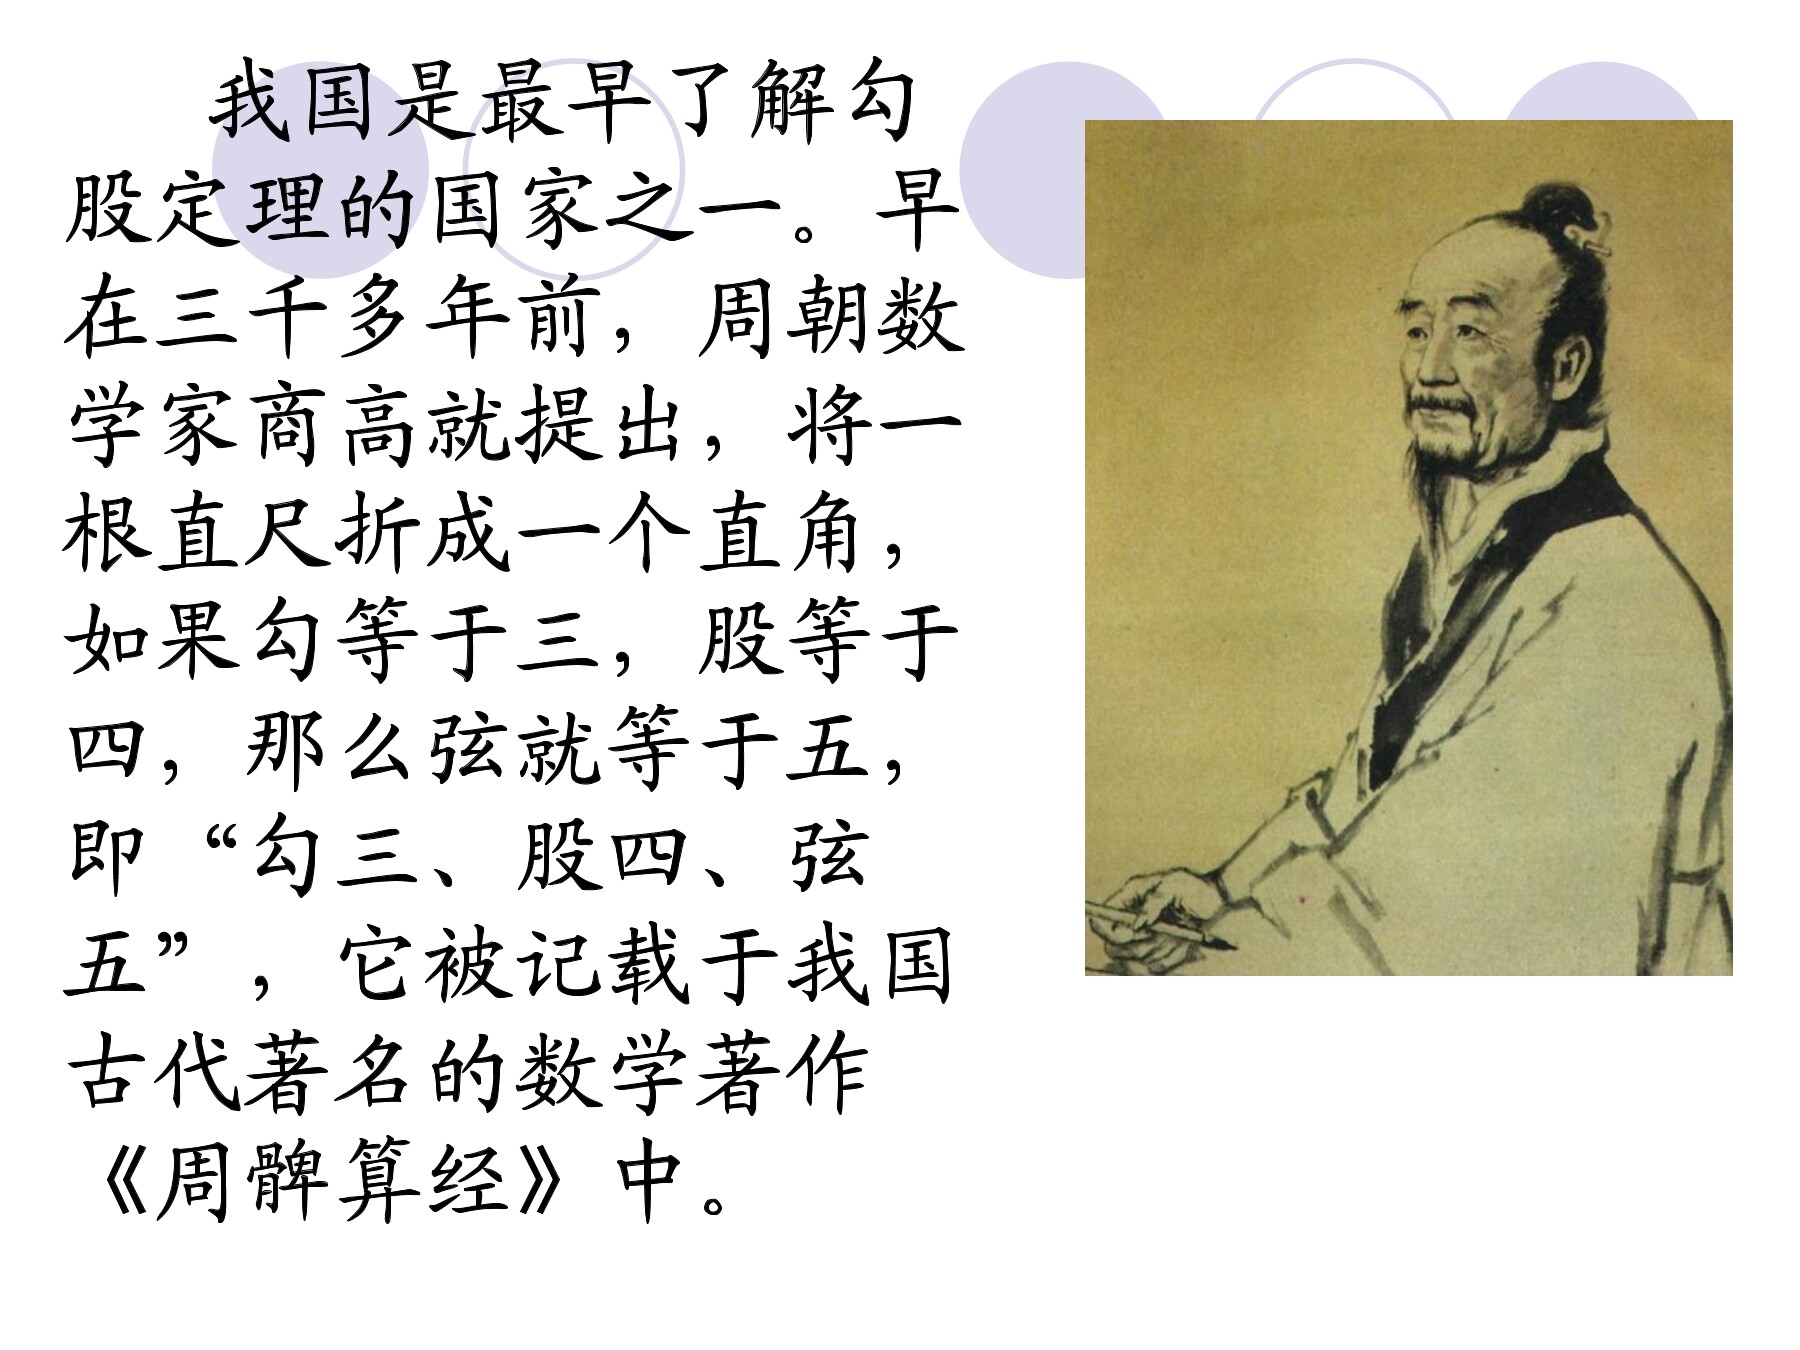 我国是最早了解勾
股定理的国家之一。早
在三千多年前，周朝数
学家商高就提出，将一
根直尺折成一个直角，
如果勾等于三，股等于
四，那么弦就等于五，
即“勾三、股四、弦
五”，它被记载于我国
古代著名的数学著作
《周髀算经》中。